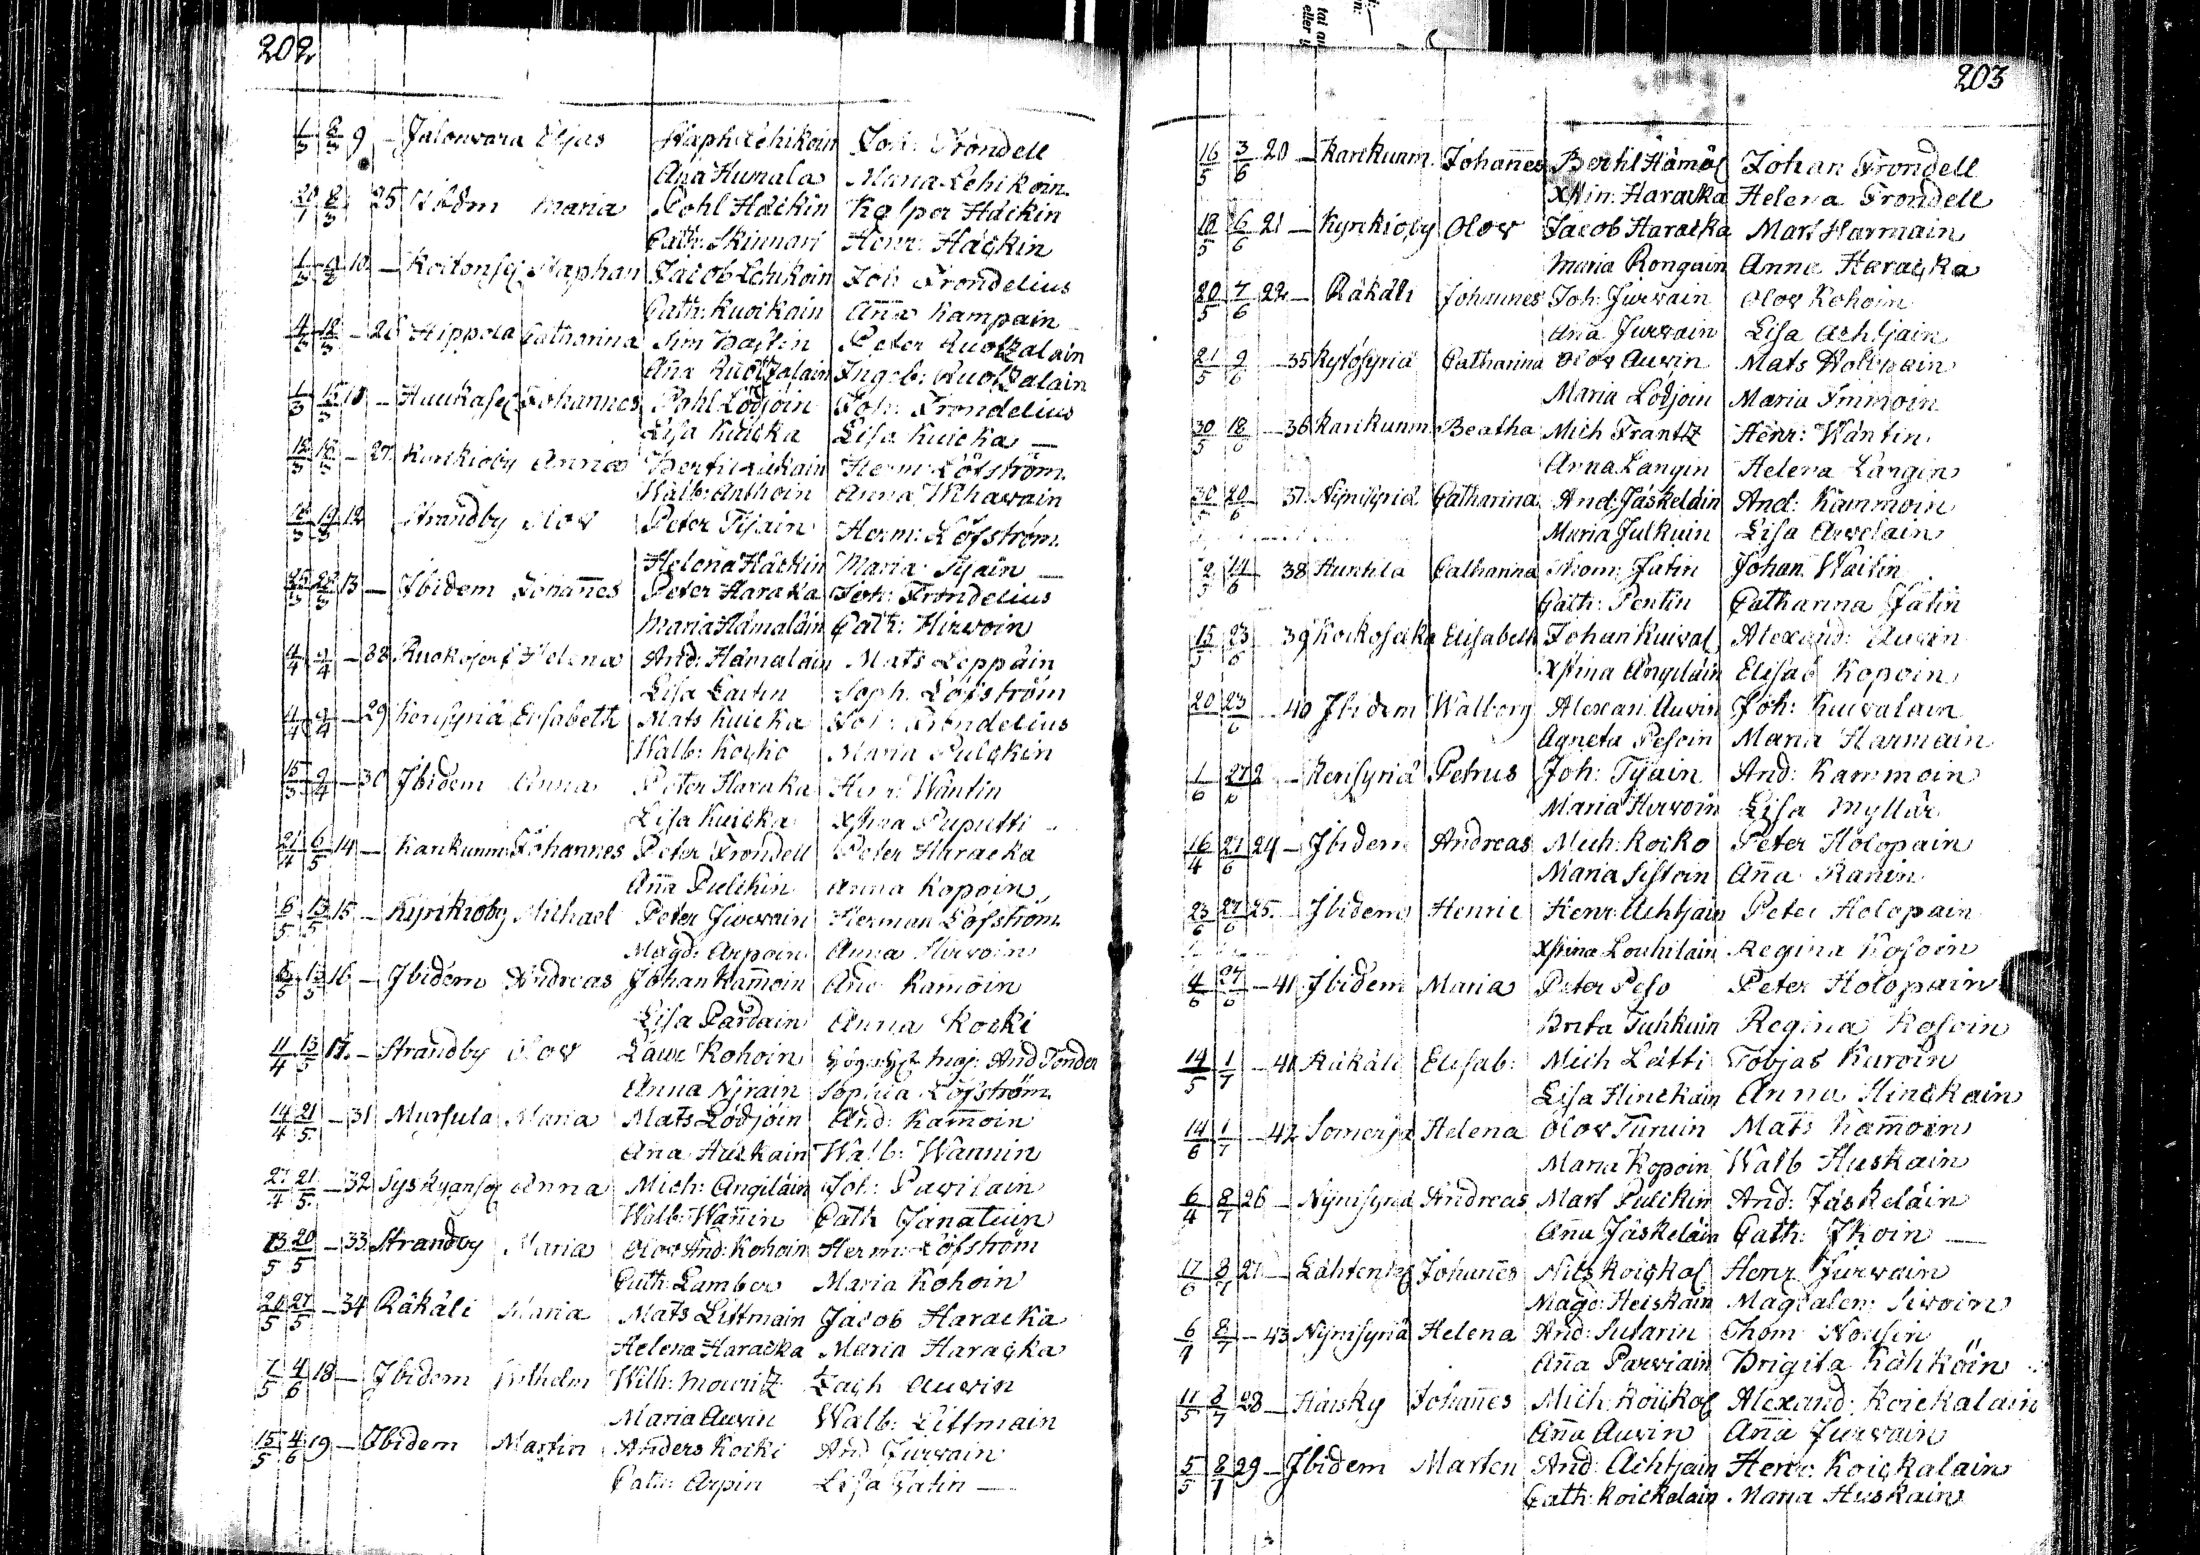 202
1/3 8/3 9 – Jalonvara Elias Staph: Lehikoin Joh: Frondell
Aña Humala Maria Lehikoin
8/3 25 Ibidm Maria Pohl Häckin Kasper Häckin
Cath: Skinnari Henr: Häckin
1/3 8/3 10 – Koitonsel Staphan Jacob Lehikoin Joh: Frondelius
Cath: Kuockain Aña Kampain
4/3 12/3 – 26 Hippola Catharina Sim Peter Ruotzalain
Aña Ruotzalain Ingeb: Ruotzalain
1/3 15/3 11 – Haukasel Johannes Pohl Lödjöin Joh: Frondelius
Lisa Kuicka Lisa Kuicka –
12/3 – 27 Kyrckioby Anna Bertil Herm: Löfström
Walb: Anthoin Anna Wihavain
12 Strandby Olov Peter Tijain Herm: Löfström
Helena Häckin Maria Tijain –
25/3 13 – Ibidem Johañes Peter Haracka Joh: Frondelius
Maria Hämäläin Cath: Hirvoin
4/4 – 28 Ruokojerf Helena And: Hämäläin Mats Leppäin
Lisa Laitin Soph: Löfström
4/4 – 29 Kerisyriä Elisabeth Mats Kuicka Joh: Frondelius
Walb: Kockio Maria Pulckin
– 30 Ibidem Anna Peter Haracka Henr: Wäntin
Lisa Kuicka Xstina Puputti –
21/4 6/5 14 – Karikunm: Johannes Peter Frondell Peter Haracka
Aña Pulckin Anna Kopoin
6/5 13/5 15 – Kyrikioby Michael Peter Jurvain Herman Löfström
Magd: Arpoin Anna Hirvoin
8/5 13/5 16 – Ibidem Andreas Johan Kamoin And Kamoin
Lisa Pardain Anna Kocki
11/4 13/5 17 – Strandby Olov Laur Kohoin And Tonder
Anna Nirain Sophia Löfström
14/4 21/5 – 31 Mursula Maria Mats Lödjöin And: Kamoin
Aña Huskain Walb: Wannin
27/4 21/5 – 32 Syskyänsel Anna Mich: Angiläin Joh: Pavilain
Walb: Wañin Cath Janatuin
13/5 20/5 – 33 Strandby Maria Olov And: Kohoin Herm: Löfström
Cath: Lamber Maria Kohoin
21/5 27/5 – 34 Räkäli Maria Mats Littmain Jacob Haracka
Helena Haracka Maria Haracka
7/5 4/6 18 – Ibidem Wilhelm Wilh: Mouritz Zach Auvin
Maria Auvin Walb: Littmain
15/5 4/6 19 – Ibidem Martin Anders Kocki And Jurvain
Cath: Arpin Lisa Fatin –
203
16/5 3/6 20 – Karikunm. Johañes Bertil Hämäl Johan Frondell
Xstin: Haracka Helena Frondell
18/5 6/6 21 – Kyrkioby Olov Jacob Haracka Mart Harmain
Maria Rongain Anna Haracka
20/5 7/6 22 – Räkäli Johannes Joh: Jurvain Olov Kohoin
Aña Jurvain Lisa Achtjain
21/5 9/6 – 35 Kytösyriä Catharina Olov Auvin Mats Holopain
Maria Lödjöin Maria Immoin
30/5 18/6 – 36 Karikunm Beatha Mich Frantz Henr: Wäntin
Anna Langin Helena Langin
30/5 20/6 37 Niinisyriä Catharina And: Jäskeläin And: Kammoin
Maria Julkuin Lisa Arvelain
38 Huntila Catharina Thom: Jatin Johan Waitin
Cath: Pentin Catharina Jatin
15/5 23/6 39 Kockoselkä Elisabeth Johan Kuival Alexand: Auvin
Xstina Angiläin Elisab Kopoin
20 23/6 40 Ibidem Walborg Alexan Auvin Joh: Kuivalain
Agneta Pesoin Maria Harmain
1/6 – Kerisyriä Petrus Joh: Tijain And: Kammoin
Maria Hirvoin Lisa Myllär
16/4 27/6 24 – Ibidem Andreas Mich: Kocko Peter Holopain
Maria Sistoin Aña Ranin
23/6 27/6 25 – Ibidem Henric Henr: Achtjain Peter Holopain
Xstina Louhilain Regina Kosoin
4/6 27/6 – 41 Ibidem Maria Peter Peso Peter Holopain
Brita Tuhkuin Regina Kosoin
14/5 1/7 – 41 Räkäli Elisab: Mich Lätti Tobjas Kuroin
Lisa Hinckain Anna Hinckain
14/6 1/7 – 42 Somerja Helena Olov Turuin Mats Kamoin
Maria Kopoin Walb Huskain
6/4 8/7 26 – Niinisyriä Andreas Mart Pulckin And: Jäskeläin
Aña Jäskeläin Cath: Ikoin –
17/6 8/7 27 – Lahtensel Johañes Nils Koickal Henr Jurvain
Magd: Heiskain Magdalen: Sivoin
8/7 – 43 Niinisyriä Helena And: Sutarin Thom Nousin
Aña Parviain Brigita Kähköin
11/5 8/7 28 – Hausky Johañes Mich: Koickal Alexand: Koickalain
Aña Auvin Aña Jurvain
5/5 8/7 29 – Ibidem Marten And: Achtjain Henr: Koickalain
Cath: Koickelain Maria Huskain